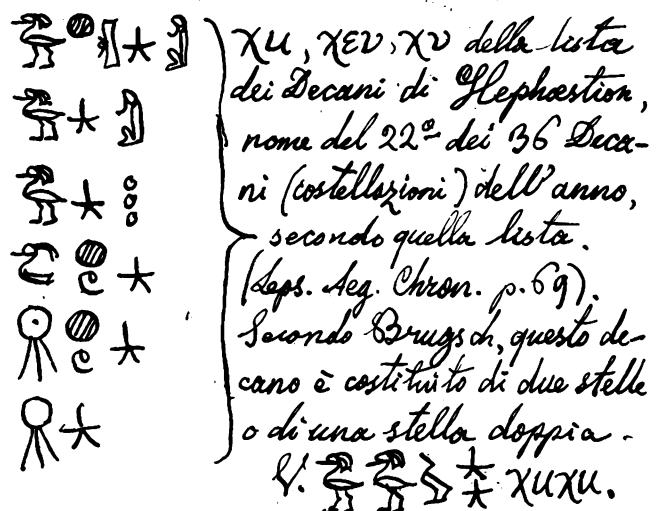 χu, χευ, χυ della lista
dei Decani di Hephæstion,
nome del 22º dei 36 Deca-
ni (costellazioni) dell'anno,
secondo quella lista.
(Leps. Aeg. Chron. p. 69).
Secondo Brugsch, questo de-
cano è costituito di due stelle
o di una stella doppia.
V. χuχu.